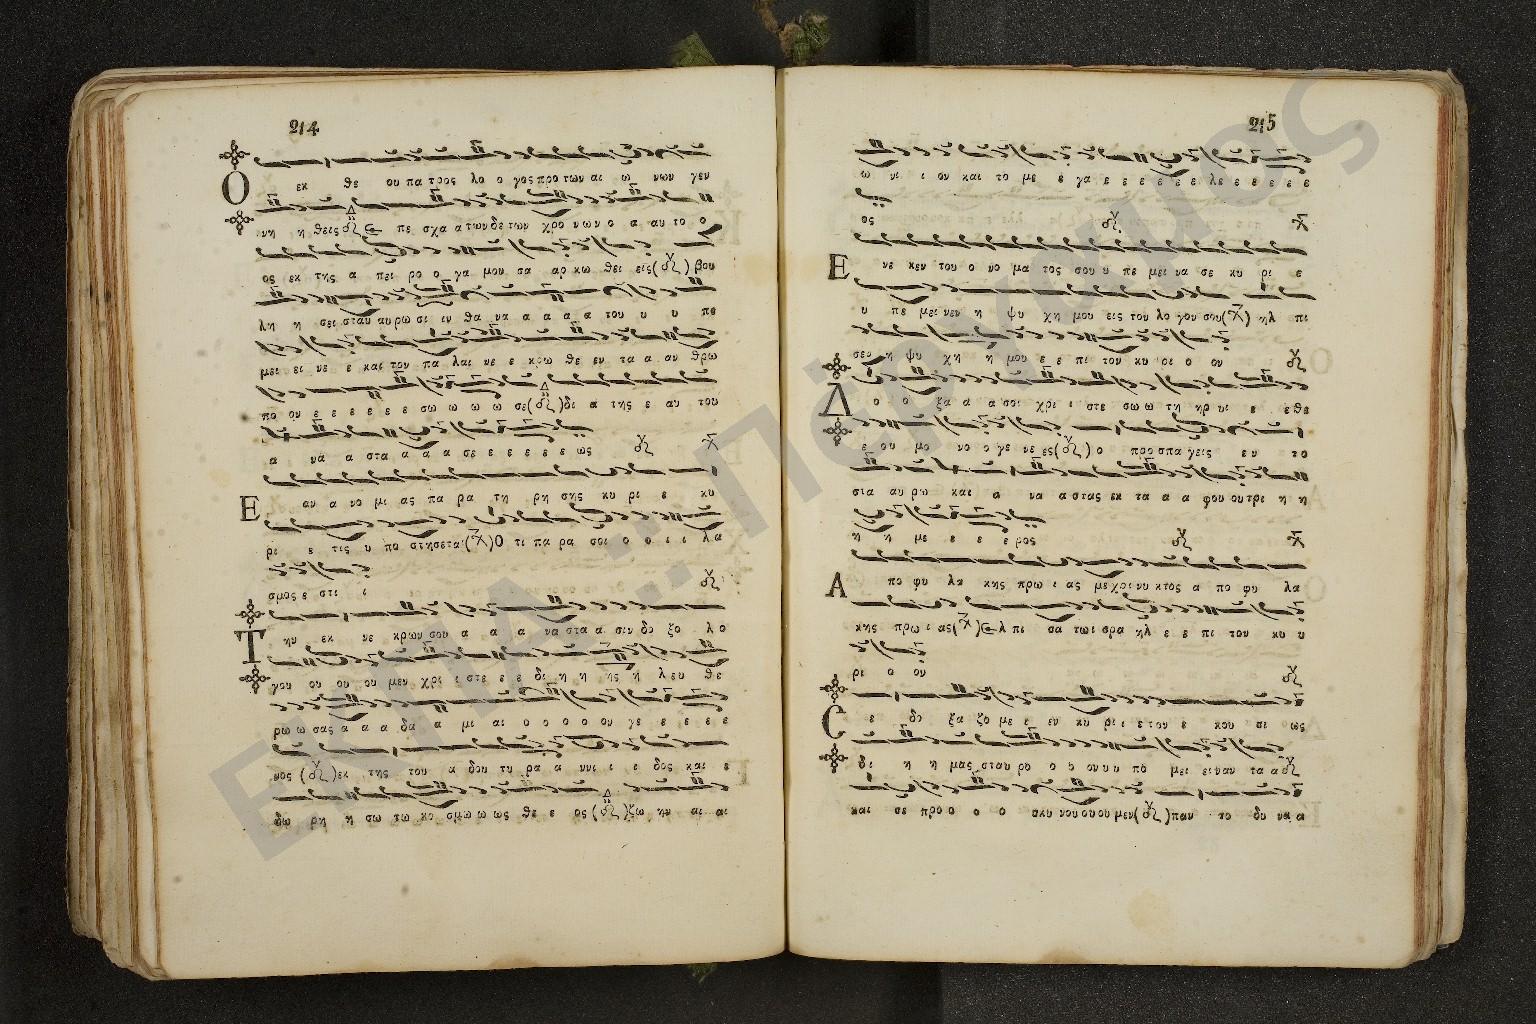 214
Ο εκ θε ου πα τρος λο ο γος προ των αι ω νων γεν
νη η θεις ε πε σχα α των δε των χρο νων ο α αυ το ο
ος εκ της α πει ρο ο γα μου σα αρ κω θει εις βου
λη η σει σταυ αυ ρω σι ιν θα να α α α α του υ υ πε
μει ει νε ε και τον πα λαι νε ε κρω θε εν τα α αν θρω
πο ον ε ε ε ε ε ε σω ω ω ω σε δι α της ε αυ του
α να α στα α α α σε ε ε ε ε ε ως
Ε αν α νο μι ας πα ρα τη ρη σης κυ ρι ε κυ
ρι ε τις υ πο στησεται Ο τι πα ρα σοι ο ο ι ι λα
σμος ε στι ι
Τ ην εκ νε κρων σου α α α να στα α σιν δο ξο λο
γου ου ου ου μεν χρι ι στε ε ε δι η η ης η λευ θε
ρω ω σας α α α δα α μι αι ο ο ο ο ου γε ε ε ε ε
νος εκ της του α δου τυ ρα α ννι ι ι δος και ε
δω ρη η σω τω κο σμω ω ω ως θε ε ος ζω ην αι αι
215
ω νι ι ον και το με ε γα ε ε ε ε ε ε λε ε ε ε ε ε
ος
Ε νε κεν του ο νο μα τος σου υ πε μει να σε κυ ρι ε
υ πε μει νεν η ψυ χη μου εις τον λο γον σου ηλ πι
σεν η ψυ χη η μου ε ε πι τον κυ ρι ο ον
Δ ο ο ξα α α σοι χρι ι στε σω ω τη ηρ υι ε εθε
ε ου μο νο ο γε νε ες ο προ σπα γεις εν το
στα αυ ρω και α να α στας εκ τα α α φου ου τρι η η
η η με ε ε ε ρος
Α πο φυ λα κης πρω ι ας με χρι νυ κτος α πο φυ λα
κης πρω ι ας ε λ πι σα τω ισρα ηλ ε ε πι τον κυ υ
ρι ο ον
C ε δο ξα ζο με ε εν κυ ρι ι ε τον ε κου σι ως
δι η η μας σταυ ρο ο ο ον υ υ πο μει ει ναν τα α
και σε προ ο ο ο σκυ νου ου ου μεν παν το δυ να α